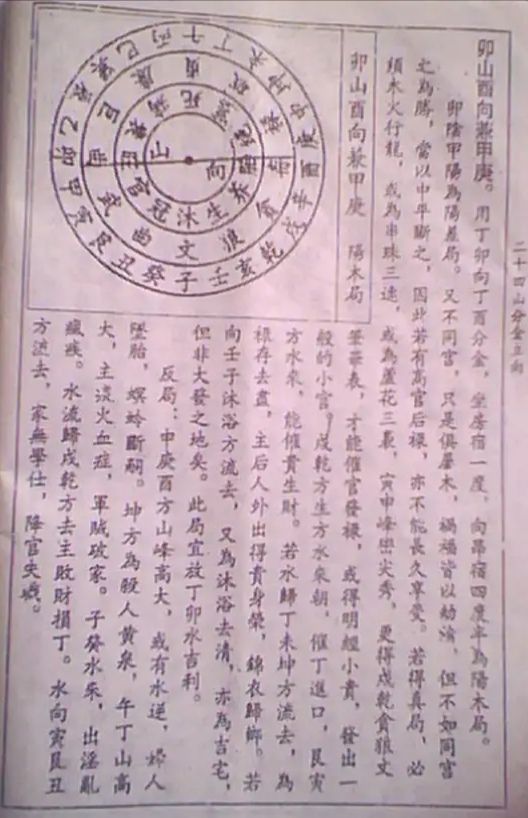 二十四山分金立向
卯山酉向兼甲庚。用丁卯向丁酉分金，坐房宿一度，向昴宿四度半為陽木局。
卯陰甲陽為陽差局。又不同宮，只是俱屬木，禍福皆以劫演，但不如同宮
之為勝，當以中平斷之，因此若有高官后祿，亦不能長久享受。若得真局，必
須木火行龍，或為串珠三連，或為蘆花三裊，寅甲峰巒尖秀，更得戌乾貪狼文
卯山酉向兼甲庚 陽木局
筆華表，才能催官發祿，或得明經小貴，發出一
般的小官。戌乾方生方水來朝，催丁進口，艮寅
方水來，能催貴生財。若水歸丁未坤方流去，為
祿存去盡，主后人外出得貴身榮，錦衣歸鄉。若
向壬子沐浴方流去，又為沐浴去清，亦為吉宅，
但非大發之地矣。此局宜放丁卯水吉利。
反局：申庚酉方山峰高大，或有水逆，婦人
墜胎，螟蛉斷嗣。坤方為殺人黃泉，午丁山高
大，主痰火血症，軍賊破家。子癸水朱，出淫亂
瘋疾。水流歸戌乾方去主敗財損丁。水向寅艮丑
方流去，家無學仕，降官失職。
山 向
官 冠 沐 生 养 死
武 曲 文 狼 貪
寅 艮 丑 癸 子 壬 亥 乾 戌 辛 酉 庚 申 坤 未 丁 午 丙 巳 乙 卯 甲